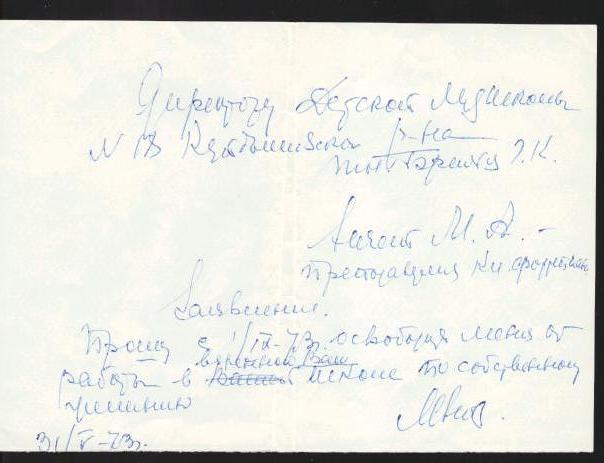 Директору Детской Музшколы
N 18 Куйбышевского р-на
тов. Тэриту Э. К.
Аисат М. А. –
преподавателя кл. фортепиано
Заявление.
Прошу с 1/IX-73г. освободить меня от
вверенной Вам
работы в школе по собственному
желанию
31/V-73г.